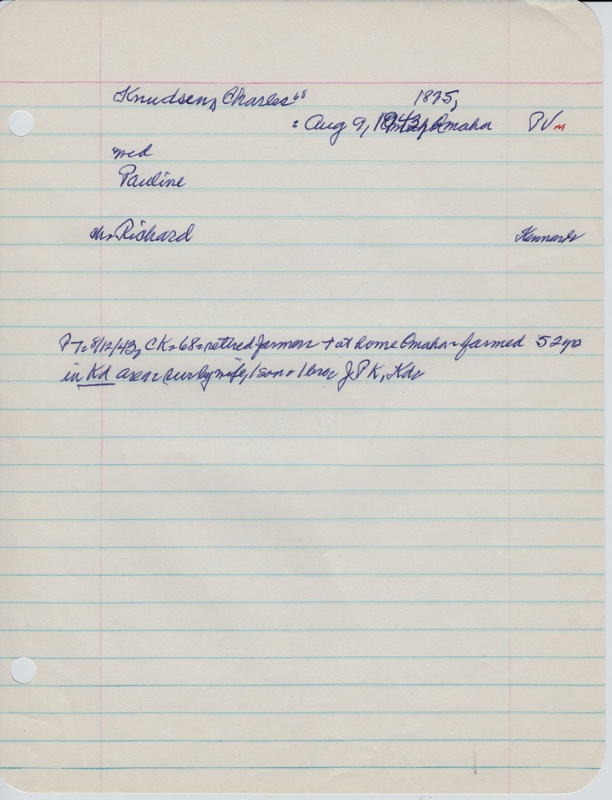 Knudsen, Charles 68 1875,
: Aug 9, 1943, Omaha PV
med
Pauline
ch. Richard Kennard
PT. 8/12/43, CK. 68. retired farmer + at home Omaha. farmed 52 yrs
in Kd area. sur by wife, 1 son + 1 bro J P K, Kd.